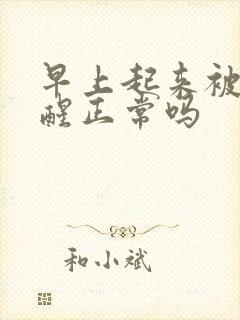 早上起来被
醒正常吗
和小斌